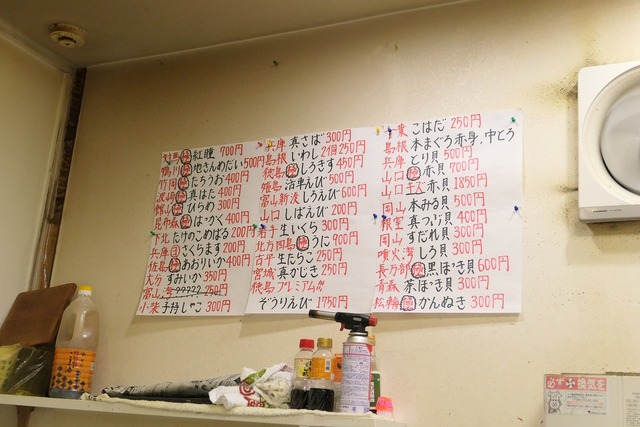 対馬 紅瞳 700円
鴨川 地きんめだい 500円
竹岡 たちうお 400円
波崎 真はた 400円
館山 ひらめ 300円
昆布森 はっかく 400円
下北 たけのこめばる 200円
兵庫 さくらます 200円
佐島 あおりいか 400円
大分 すみいか 350円
富山湾 ????? 250円
小柴 子持しゃこ 300円
兵庫 真さば 300円
島根 いわし 2個 250円
徳島 しろうきす 450円
姫島 活車えび 500円
富山新湊 しろえび 600円
山口 しばえび 200円
岩手 生いくら 300円
北方四島 うに 900円
古平 生たらこ 250円
宮城 真かじき 250円
徳島 プレミアム!!!
ぞうりえび 1750円
千葉 こはだ 250円
島根 本まぐろ赤身、中とろ
兵庫 とり貝 500円
山口 赤貝 700円
山口 赤貝 1850円
岡山 本みる貝 500円
根室 真つぶ貝 400円
岡山 すだれ貝 300円
噴火湾 しろ貝 300円
長万部 黒ほっき貝 600円
青森 茶ほっき貝 300円
松輪 かんぬき 300円
必ず 換気を